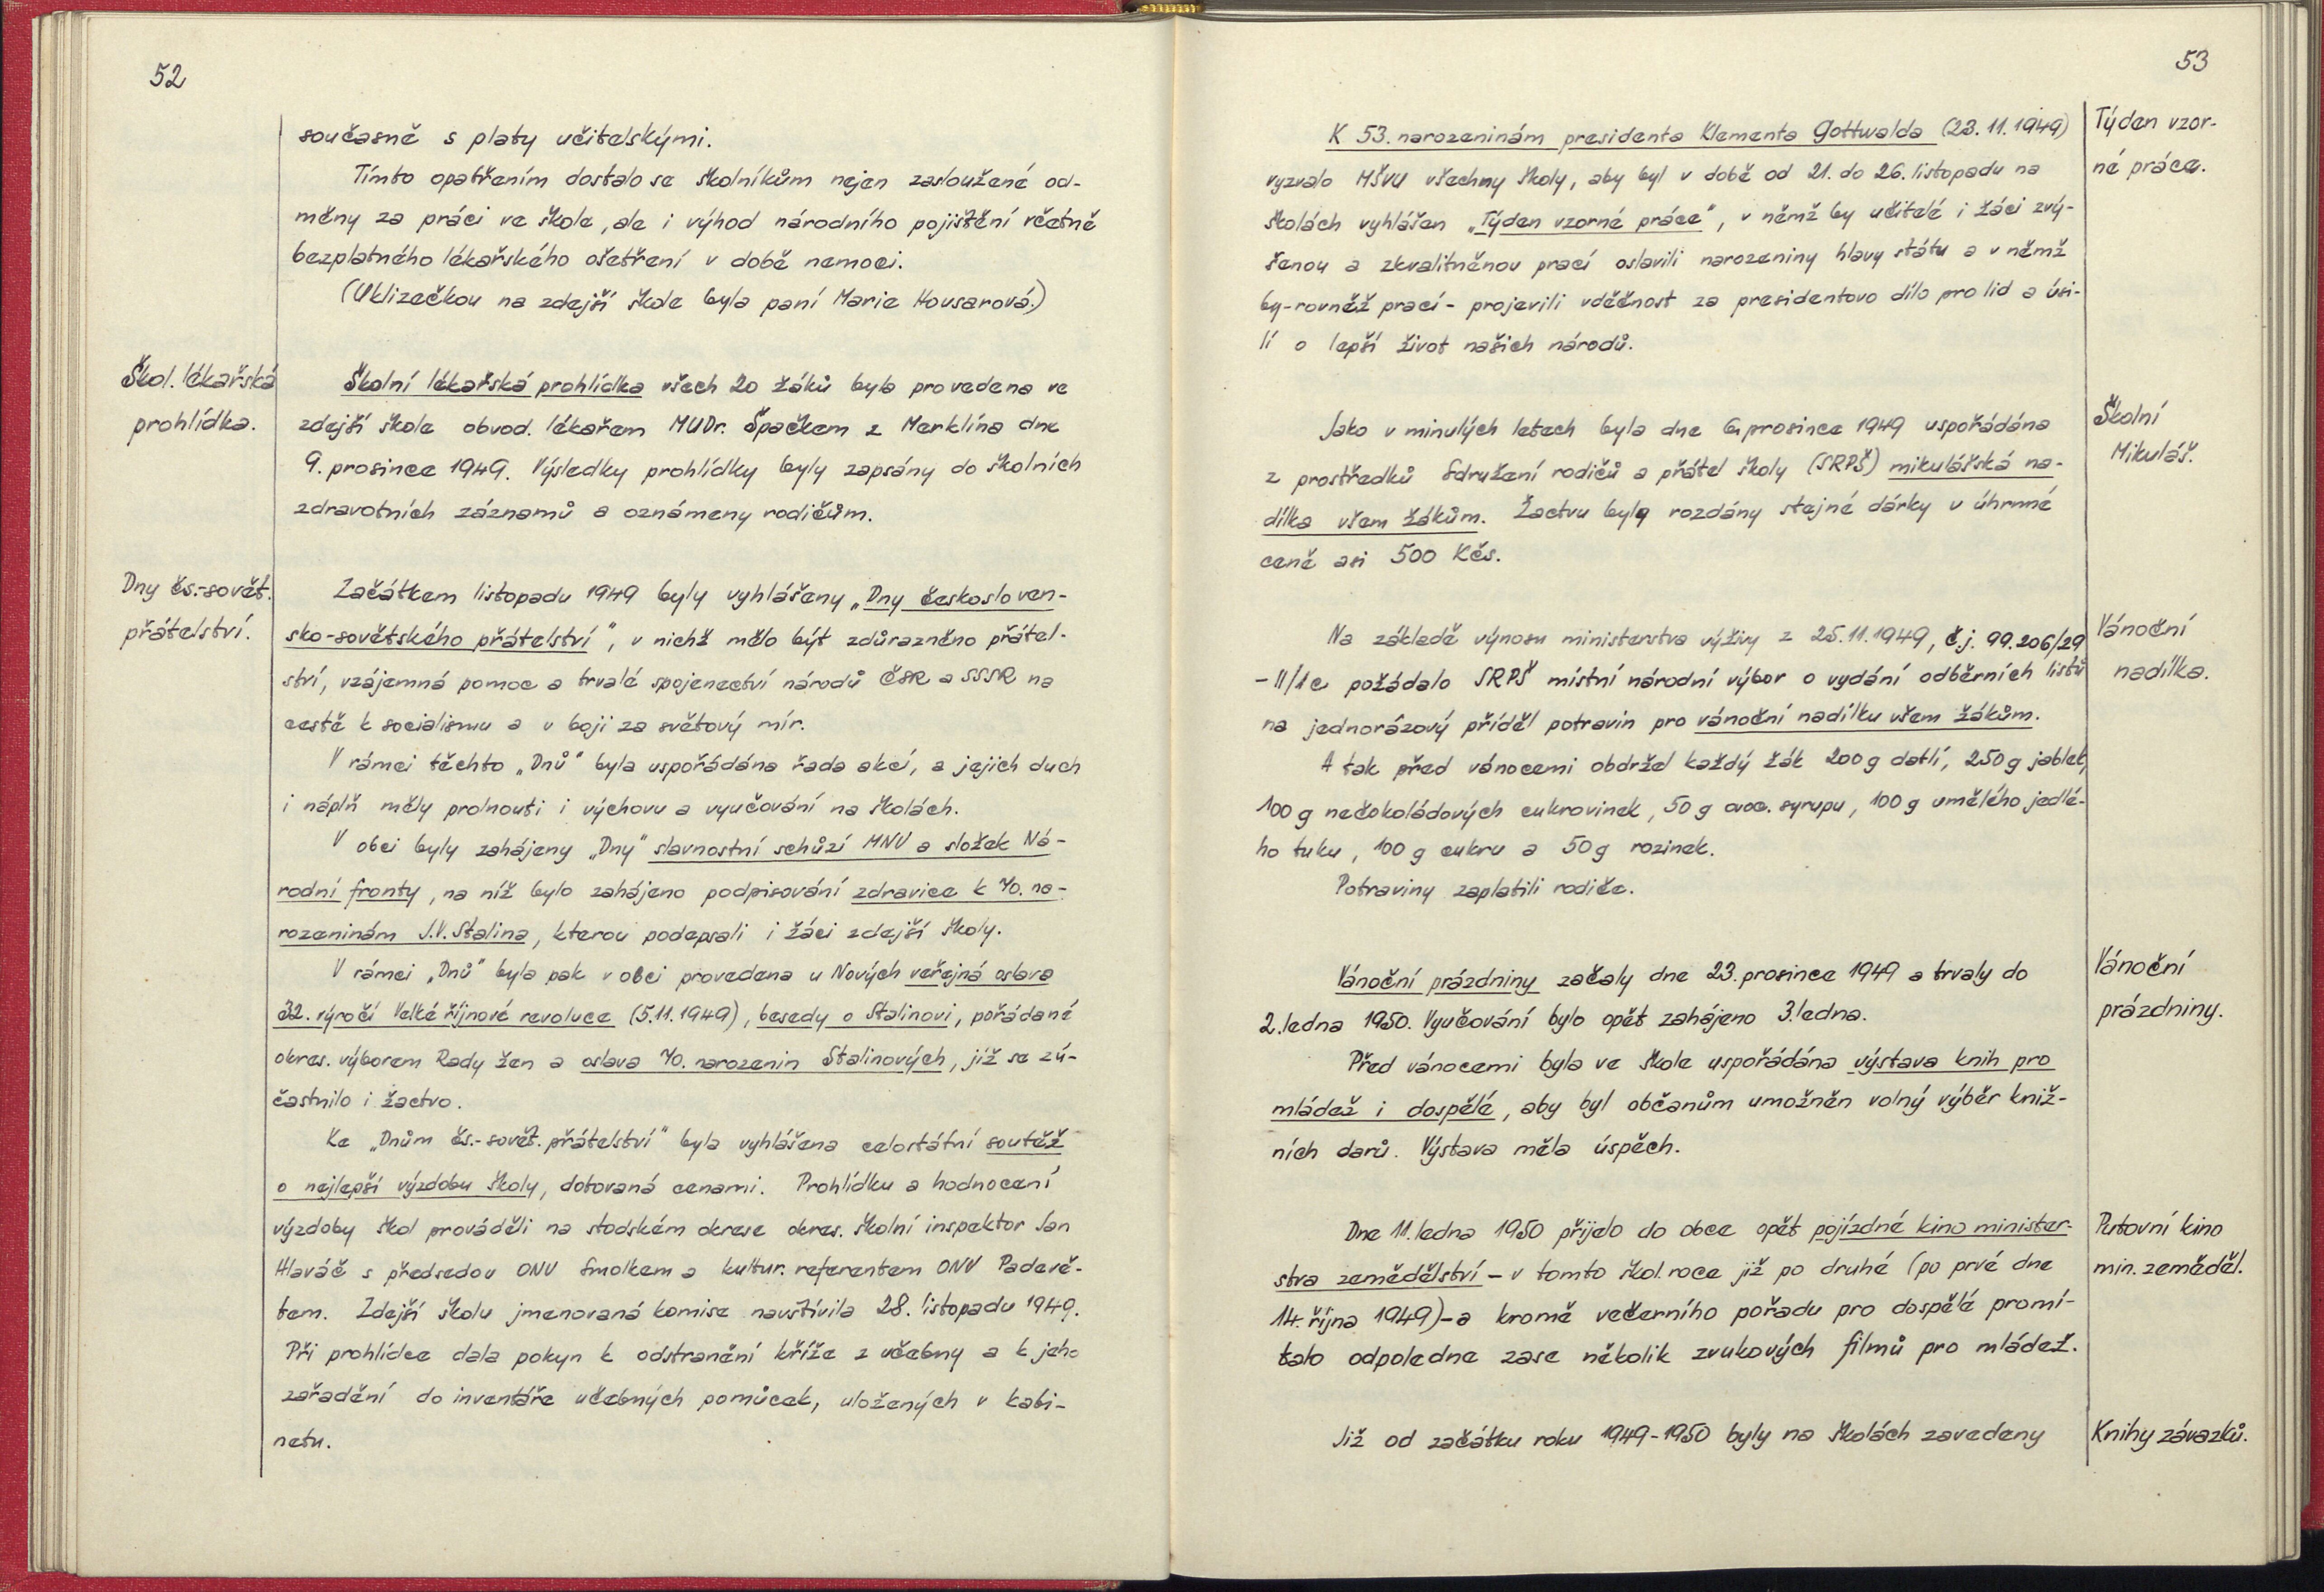 52
současně s platy učitelskými.
Tímto opatřením dostalo se školníkům nejen zasloužené od-
měny za práci ve škole, ale i výhod národního pojištění včetně
bezplatného lékařského ošetření v době nemoci.
(Uklizečkou na zdejší škole byla paní Marie Housarová.)
Škol. lékařská
prohlídka.
Školní lékařská prohlídka všech 20 žáků byla provedena ve
zdejší škole obvod. lékařem MUDr. Špačkem z Merklína dne
9. prosince 1949. Výsledky prohlídky byly zapsány do školních
zdravotních záznamů a oznámeny rodičům.
Dny čs.-sovět.
přátelství.
Začátkem listopadu 1949 byly vyhlášeny „Dny českosloven-
sko-sovětského přátelství", v nichž mělo být zdůrazněno přátel-
ství, vzájemná pomoc a trvalé spojenectví národů ČSR a SSSR na
cestě k socialismu a v boji za světový mír.
V rámci těchto „Dnů" byla uspořádána řada akcí, a jejich duch
i náplň měly prolnouti i výchovu a vyučování na školách.
V obci byly zahájeny „Dny" slavnostní schůzí MNV a složek Ná-
rodní fronty, na níž bylo zahájeno podpisování zdravice k 70. na-
rozeninám J.V. Stalina, kterou podepsali i žáci zdejší školy.
V rámci „Dnů" byla pak v obci provedena u Nových veřejná oslava
32. výročí Velké říjnové revoluce (5.11.1949), besedy o Stalinovi, pořádané
okres. výborem Rady žen a oslava 70. narozenin Stalinových, jíž se zú-
častnilo i žactvo.
Ke „Dnům čs.-sovět. přátelství" byla vyhlášena celostátní soutěž
o nejlepší výzdobu školy, dotovaná cenami. Prohlídku a hodnocení
výzdoby škol prováděli na stodském okrese okres. školní inspektor Jan
Hlaváč s předsedou ONV Smolkem a kultur. referentem ONV Padevě-
tem. Zdejší školu jmenovaná komise navštívila 28. listopadu 1949.
Při prohlídce dala pokyn k odstranění kříže z učebny a k jeho
zařadění do inventáře učebných pomůcek, uložených v kabi-
netu.
53
K 53. narozeninám presidenta Klementa Gottwalda (23.11.1949)
vyzvalo MŠVU všechny školy, aby byl v době od 21. do 26. listopadu na
školách vyhlášen „Týden vzorné práce", v němž by učitelé i žáci zvý-
šenou a zkvalitněnou prací oslavili narozeniny hlavy státu a v němž
by - rovněž prací - projevili vděčnost za presidentovo dílo pro lid a úsi-
lí o lepší život našich národů.
Týden vzor-
né práce.
Jako v minulých letech byla dne 6. prosince 1949 uspořádána
z prostředků Sdružení rodičů a přátel školy (SRPŠ) mikulášská na-
dílka všem žákům. Žactvu byly rozdány stejné dárky v úhrnné
ceně asi 500 Kčs.
Školní
Mikuláš.
Na základě výnosu ministerstva výživy z 25.11.1949, č.j. 99.206/29
-II/1c požádalo SRPŠ místní národní výbor o vydání odběrních listů
na jednorázový příděl potravin pro vánoční nadílku všem žákům.
A tak před vánocemi obdržel každý žák 200 g datlí, 250 g jablek,
100 g nečokoládových cukrovinek, 50 g ovoc. syrupu, 100 g umělého jedlé-
ho tuku, 100 g cukru a 50 g rozinek.
Potraviny zaplatili rodiče.
Vánoční
nadílka.
Vánoční prázdniny začaly dne 23. prosince 1949 a trvaly do
2. ledna 1950. Vyučování bylo opět zahájeno 3. ledna.
Před vánocemi byla ve škole uspořádána výstava knih pro
mládež i dospělé, aby byl občanům umožněn volný výběr kniž-
ních darů. Výstava měla úspěch.
Vánoční
prázdniny.
Dne 11. ledna 1950 přijelo do obce opět pojízdné kino minister-
stva zemědělství - v tomto škol. roce již po druhé (po prvé dne
14. října 1949) - a kromě večerního pořadu pro dospělé promí-
talo odpoledne zase několik zvukových filmů pro mládež.
Putovní kino
min. zeměděl.
Již od začátku roku 1949-1950 byly na školách zavedeny
Knihy závazků.